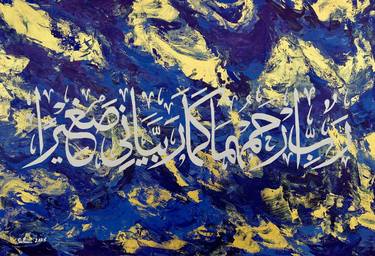 رَبِّ ارحمهما كما رَبَّيَانِي صَغِيرًا